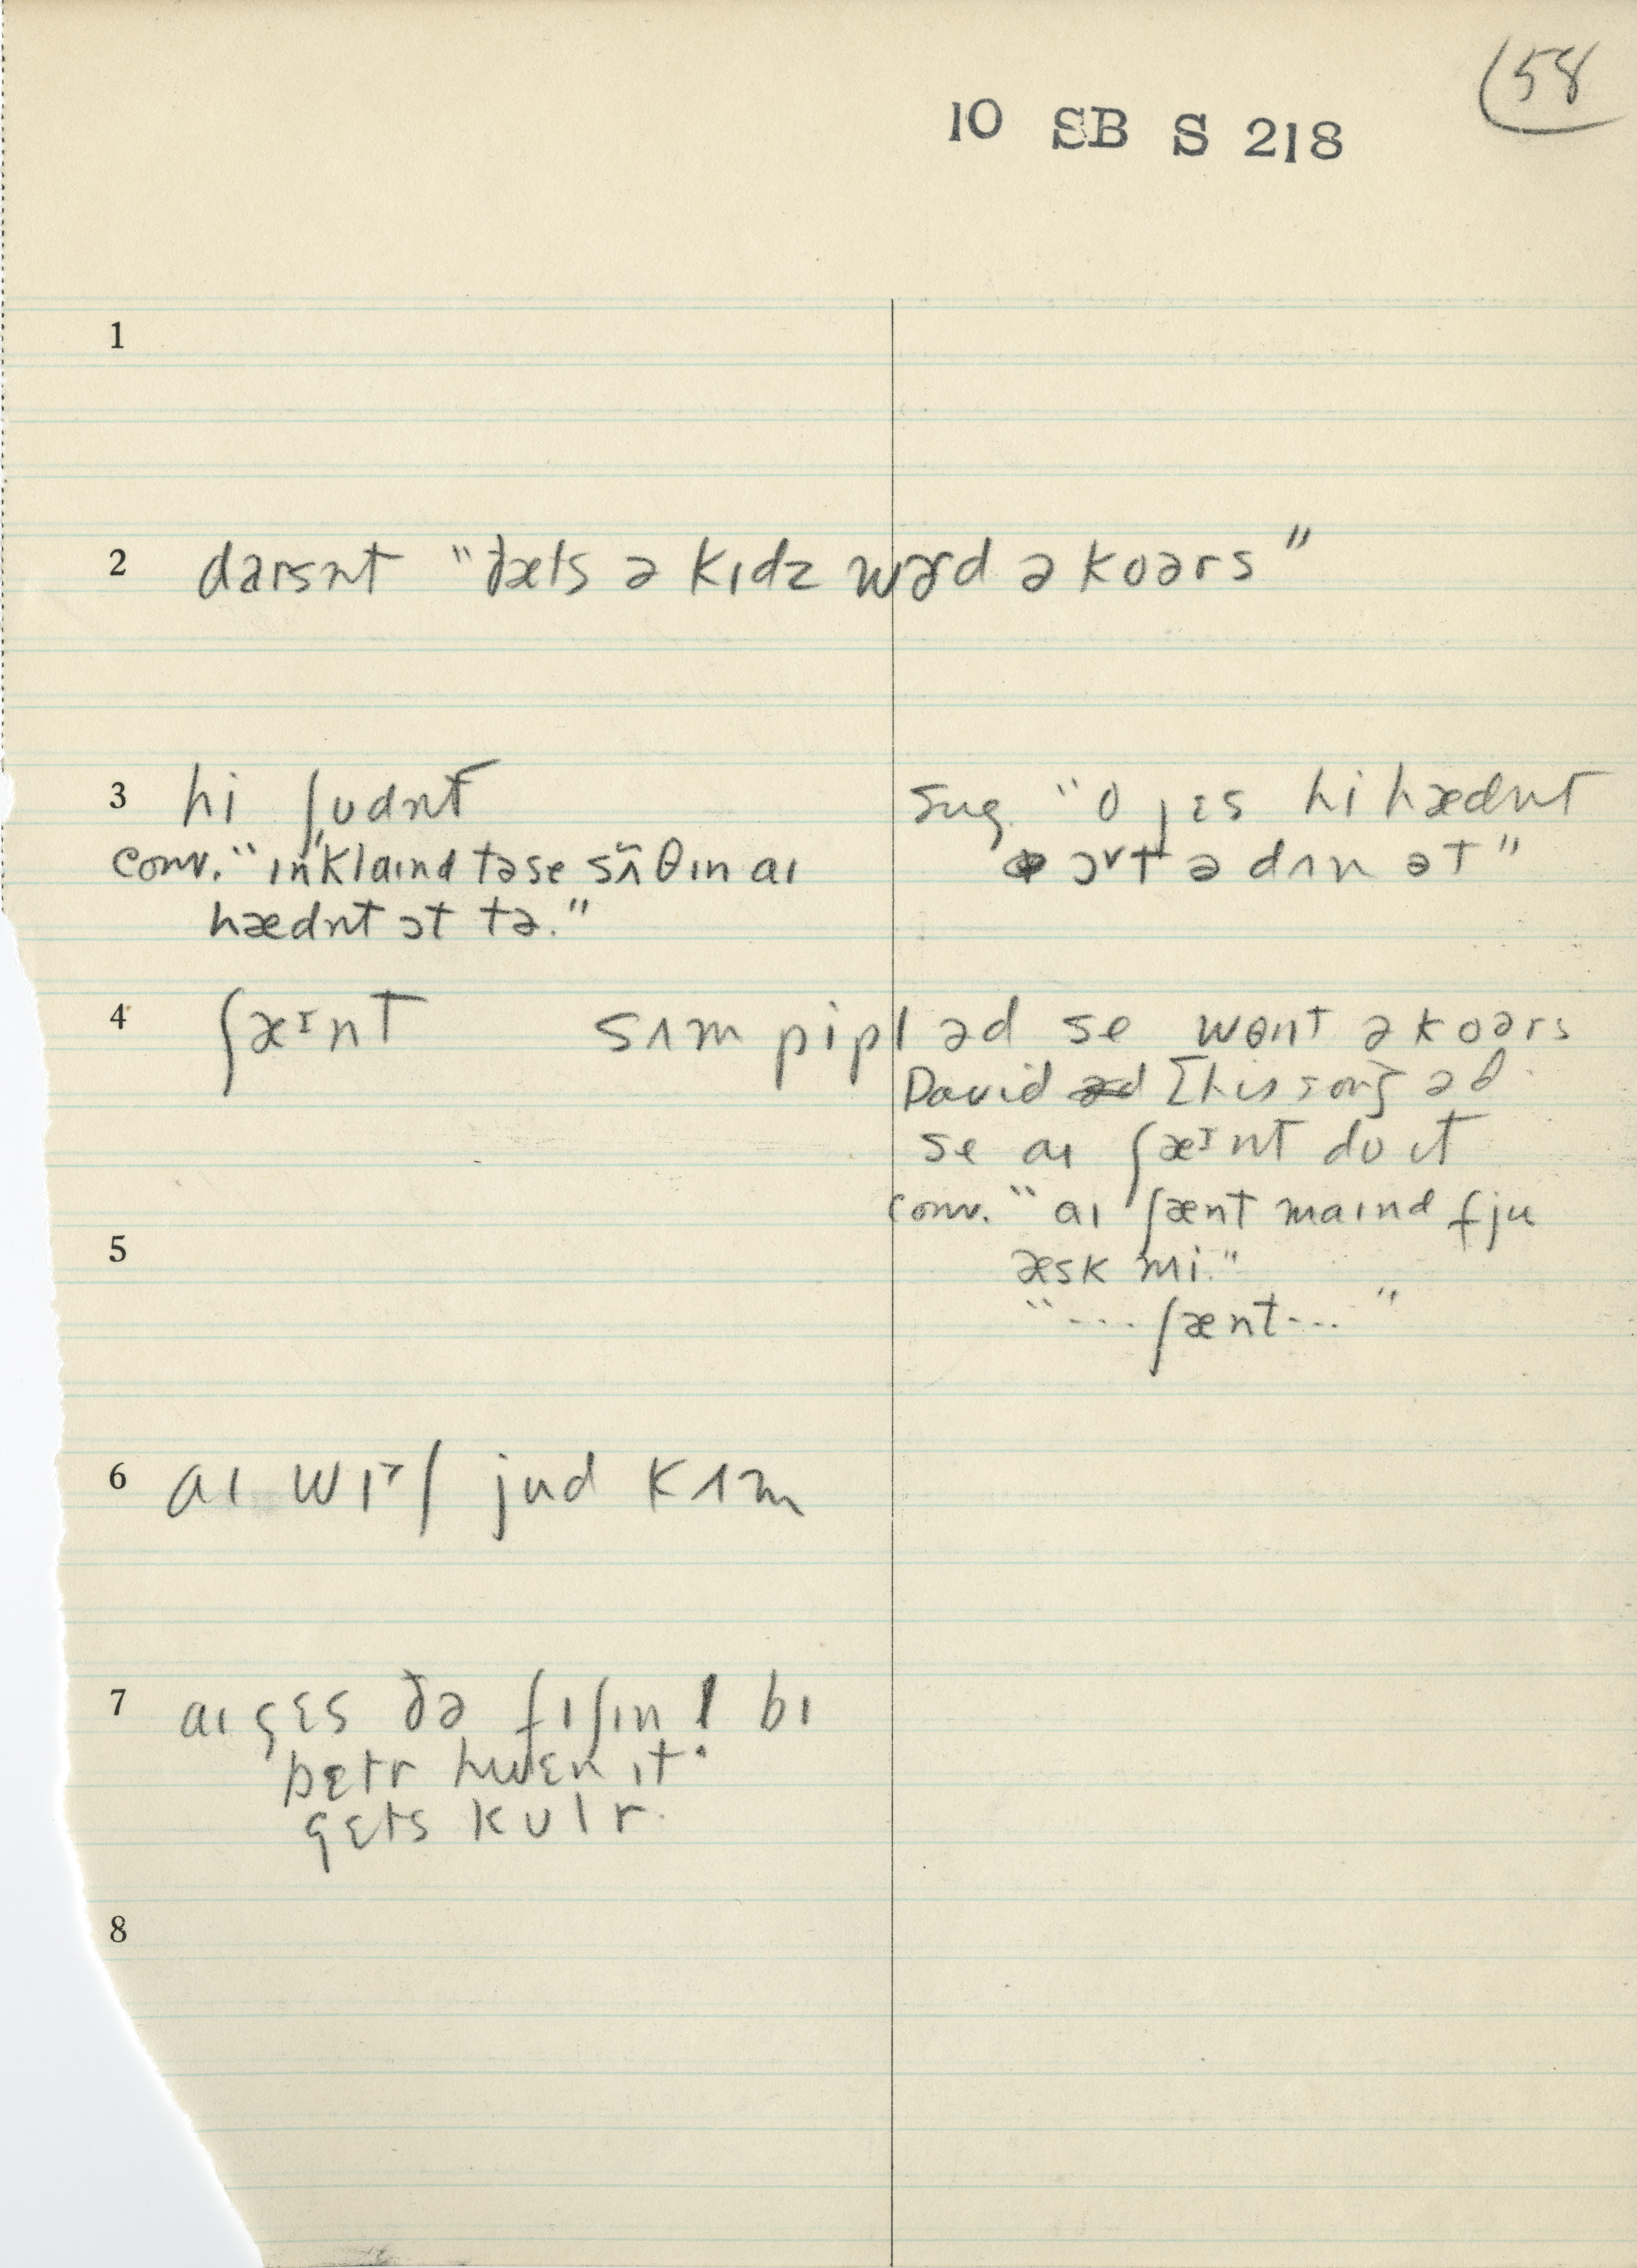 58
10 SB S 218
1
2 darsn̩t "ðæts ə kɪdz wɚd ə koərs"
3 hi ʃʊdn̩t
conv. "ɪnklaɪnd tə se sʌ̃θɪn aɪ
hædn̩t ɔt tə."
sug. "o jɛs hi hædn̩t
ɔᵛt ə dʌn ət"
4 ʃæᶦnt sʌm pipl əd se wont ə koərs
David [his son] əd
se aɪ ʃæᶦnt du ɪt
conv. "aɪ ʃænt maɪnd fju
æsk mi."
"... ʃænt ..."
5
6 aɪ wɪᵊʃ jud kʌm
7 aɪ gɛs ðə fɪʃɪn l bɪ
bɛtr hwɛn ɪt
gɛts kulr.
8